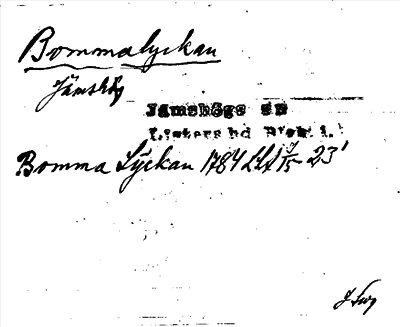 Bommalyckan
Jämshög
Jämshögs sn
Listers hd Blek. l.
Bomma Lyckan 1784 LLA 23'